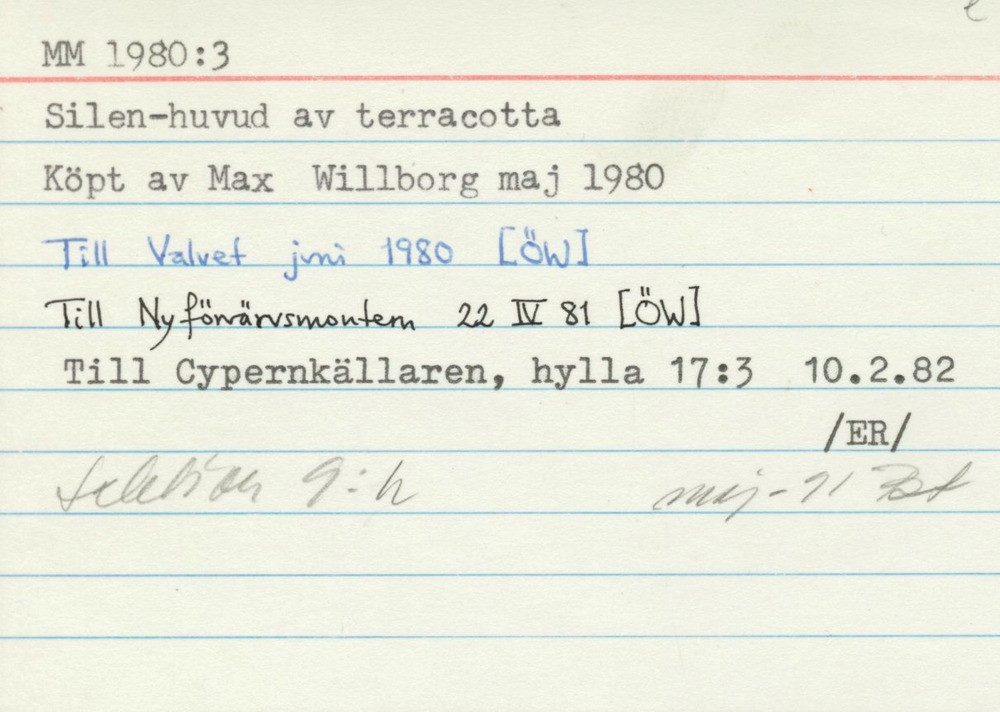 MM 1980:3
Silen-huvud av terracotta
Köpt av Max Willborg maj 1980
Till Valvet juni 1980 [ÖW]
Till Nyförvärvsmontern 22 IV 81 [ÖW]
Till Cypernkällaren, hylla 17:3 10.2.82
/ER/
Sektion 9:h maj-91